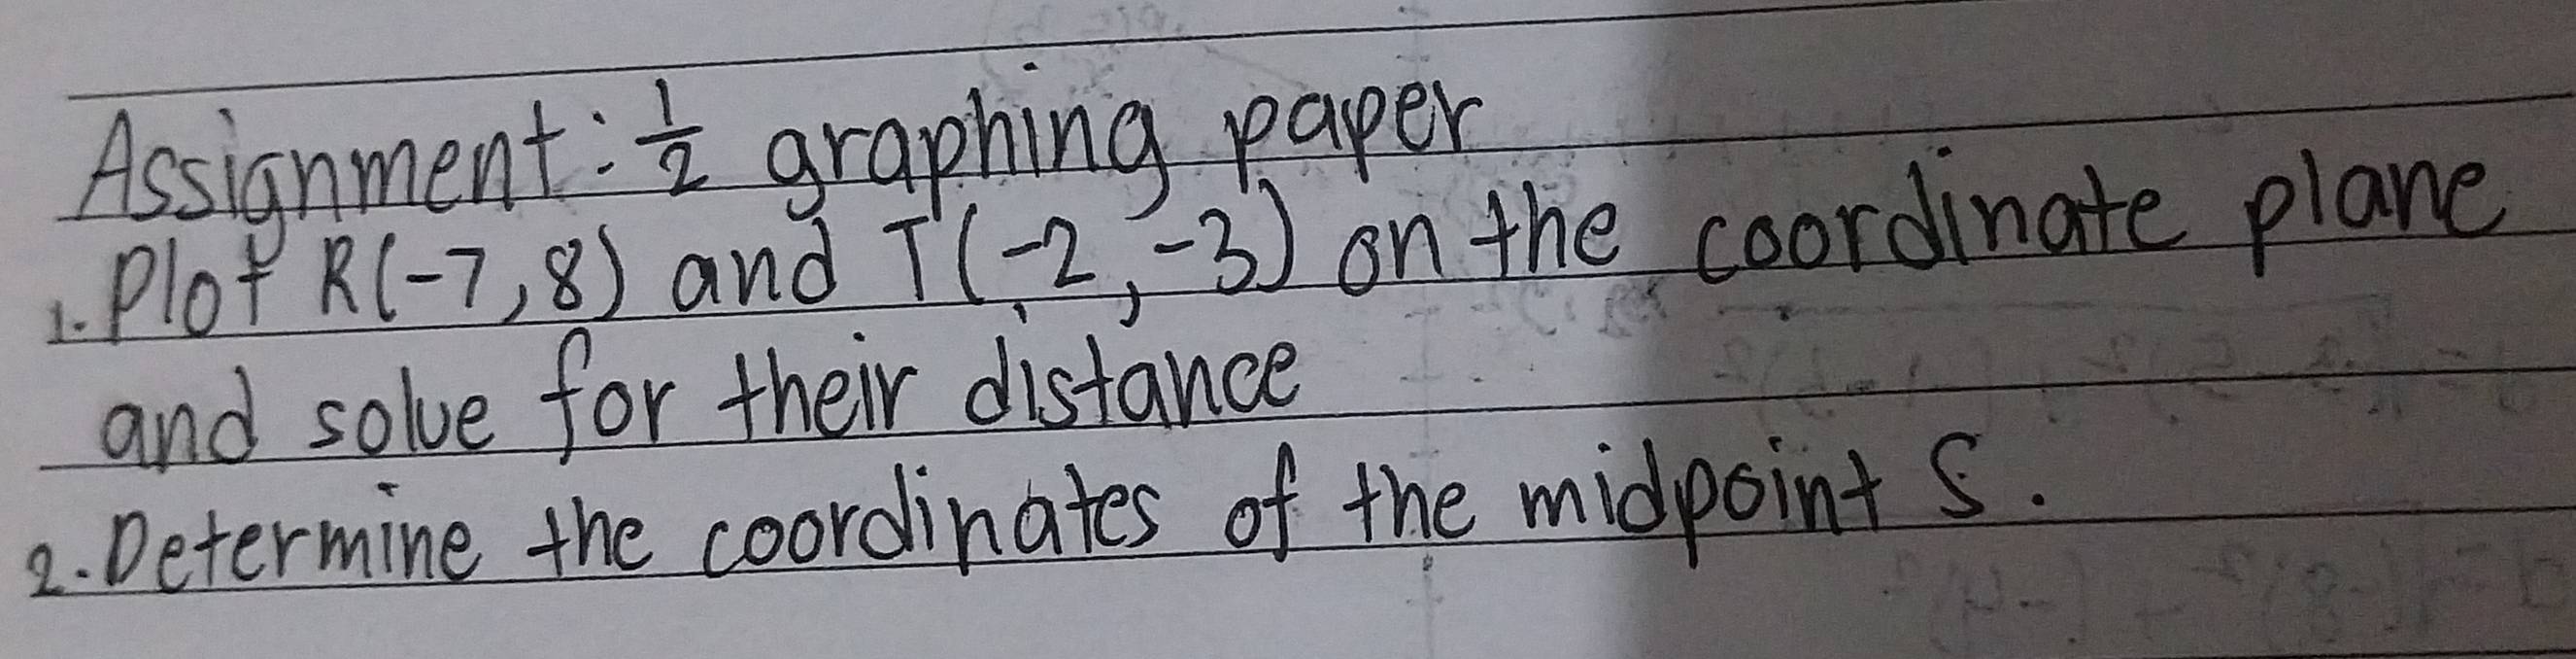 Assignment: 1/2 graphing paper
1. Plot R(-7,8) and T(-2,-3) on the coordinate plane
and solve for their distance
2. Determine the coordinates of the midpoint S.